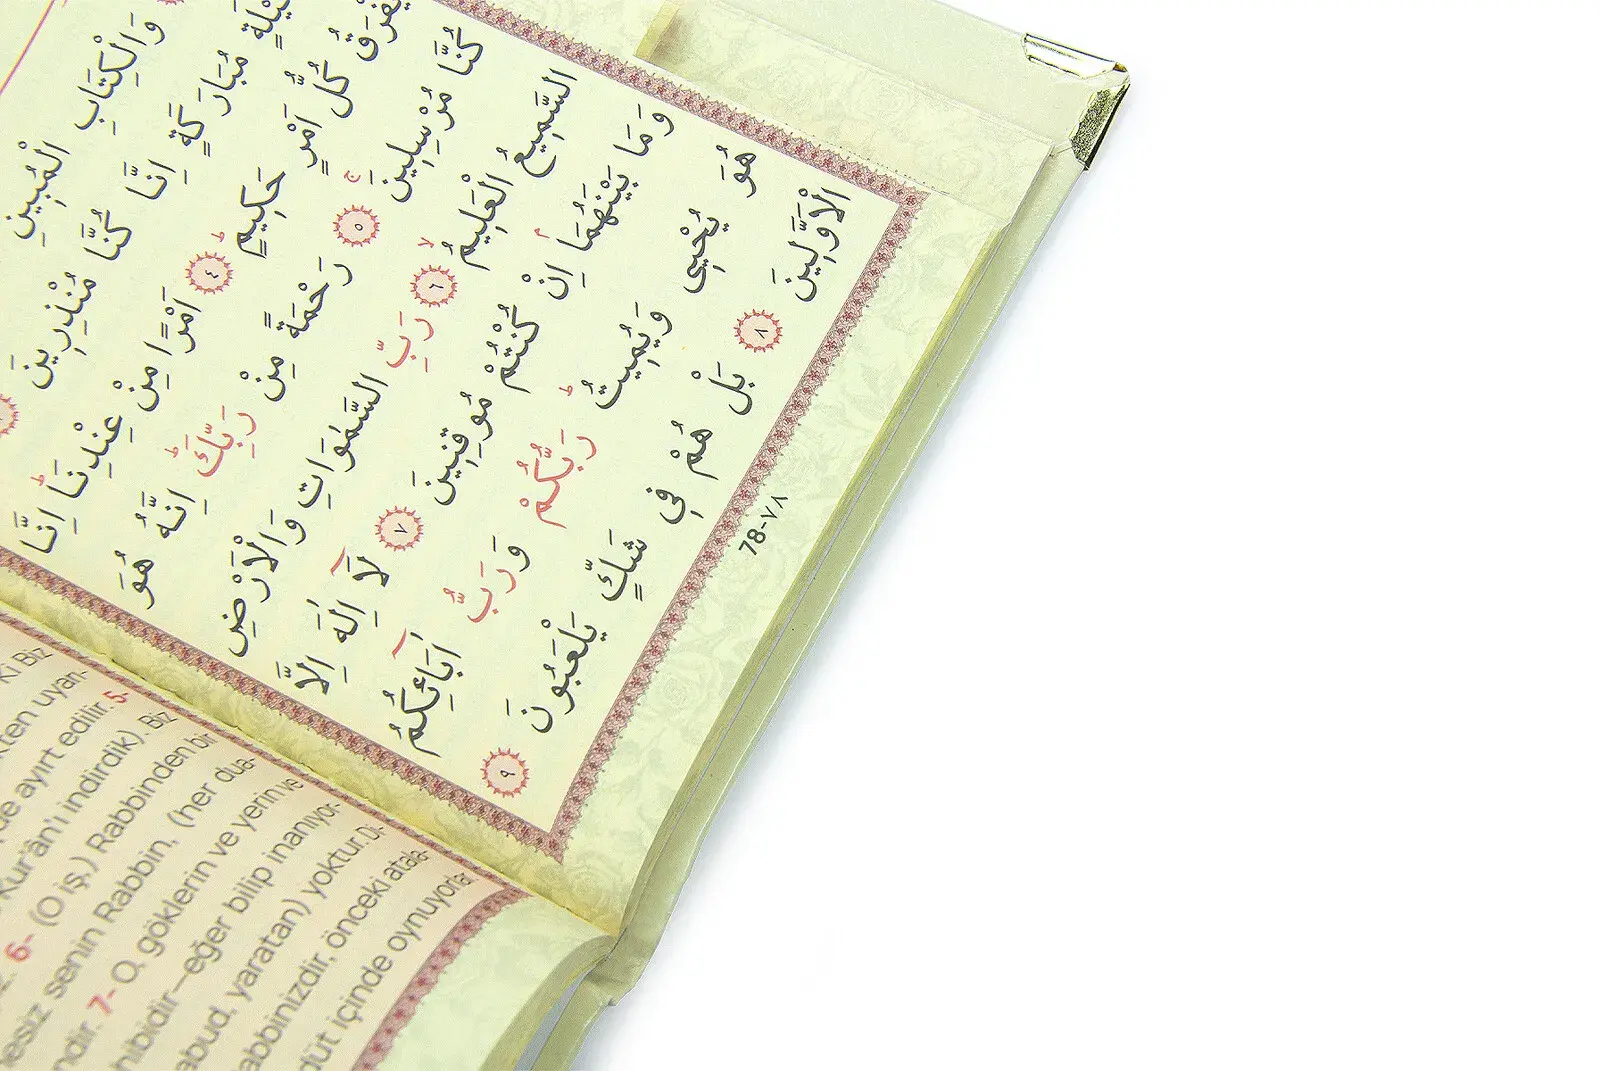 وَالْكِتَابِ الْمُبِينِ
لَيْلَةٍ مُبَارَكَةٍ اِنَّا كُنَّا مُنْذِرِينَ
يُفْرَقُ كُلُّ اَمْرٍ حَكِيمٍۙ ٤ اَمْرًا مِنْ عِنْدِنَاۜ اِنَّا
كُنَّا مُرْسِلِينَۚ ٥ رَحْمَةً مِنْ رَبِّكَۜ اِنَّهُ هُوَ
السَّمِيعُ الْعَلِيمُۙ ٦ رَبِّ السَّمٰوَاتِ وَالْاَرْضِ
وَمَا بَيْنَهُمَاۢ اِنْ كُنْتُمْ مُوقِنِينَ ٧ لَٓا اِلٰهَ اِلَّا
هُوَ يُحْيِي وَيُمِيتُۜ رَبُّكُمْ وَرَبُّ اٰبَٓائِكُمُ
الْاَوَّلِينَ ٨ بَلْ هُمْ فِي شَكٍّ يَلْعَبُونَ ٩
78-٧٨
ki Biz
uyan-
de ayırt edilir. 5-
Kur'ân'ı indirdik). Biz
6- (O iş,) Rabbinden bir
senin Rabbin, (her dua-
ndir. 7- O, göklerin ve yerin ve
hibidir—eğer bilip inanıyor-
abud, yaratan) yoktur. Di-
abbinizdir, önceki atala-
düt içinde oynuyorlar.